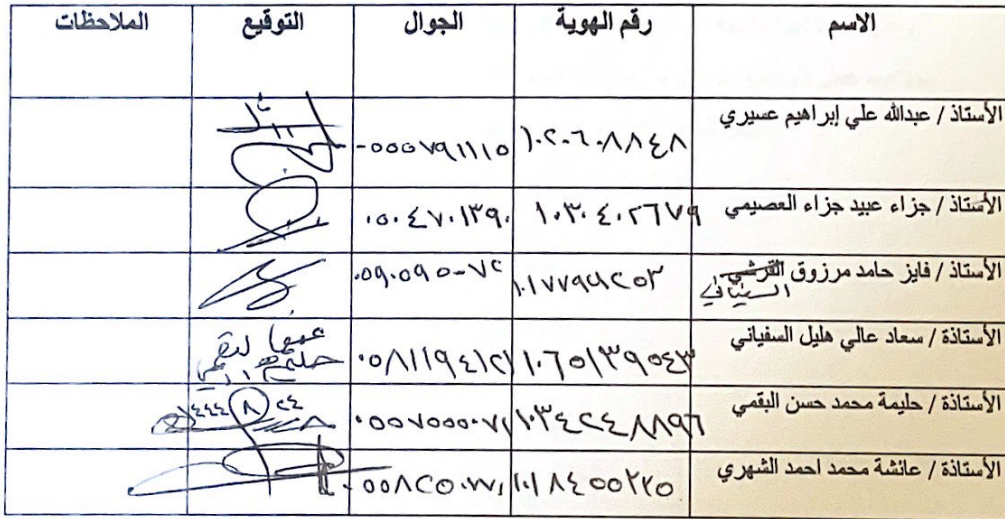 الاسم رقم الهوية الجوال التوقيع الملاحظات
الأستاذ / عبدالله علي إبراهيم عسيري ١٠٢٠٦٠٨٨٤٨ ٠٥٥٥٧٩١١١٥
الأستاذ / جزاء عبيد جزاء العصيمي ١٠٣٠٤٠٢٦٧٩ ٠٥٠٤٧٠١٣٩٠
الأستاذ / فايز حامد مرزوق القرشي
السفياني
الأستاذة / سعاد عالي هليل السفياني ١٠٦٥١٣٩٥٤٣ ٠٥٨١١٩٤١٢١
الأستاذة / حليمة محمد حسن البقمي ١٠٣٤٢٤٨٨٩٦
الأستاذة / عائشة محمد احمد الشهري